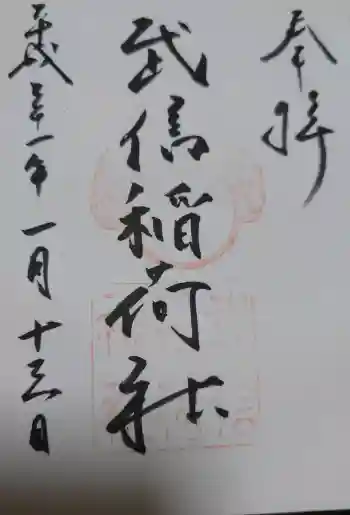 奉拝
武信稲荷社
平成卅一年一月十三日